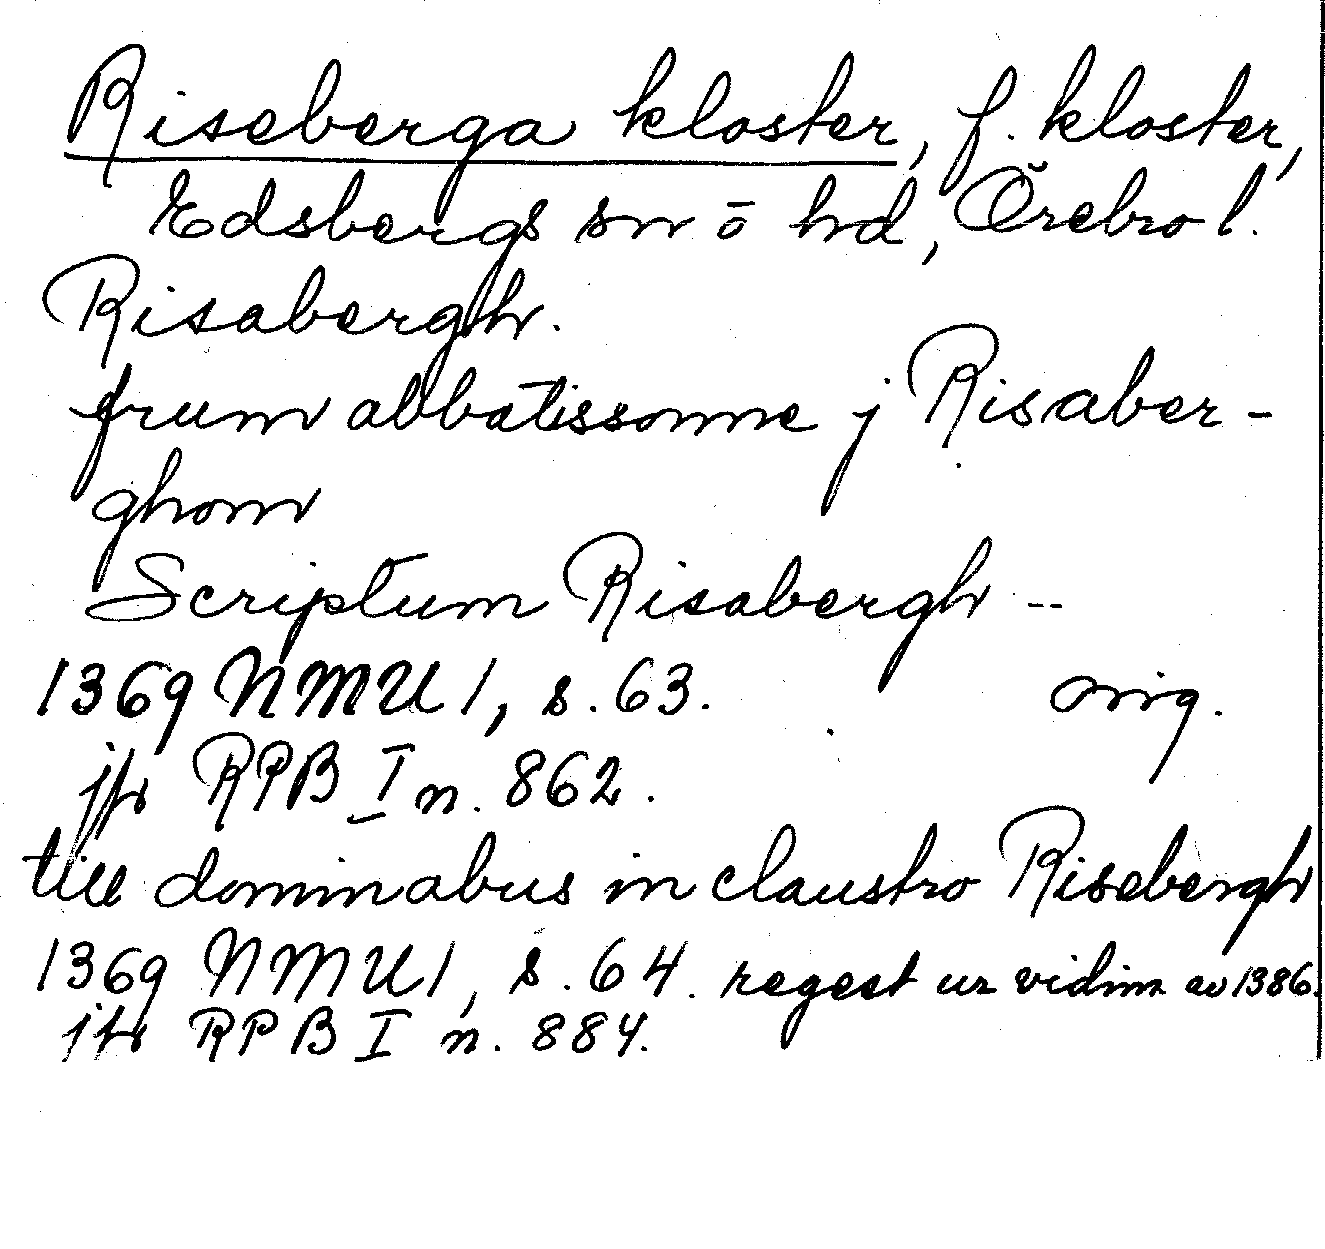 Riseberga kloster, f. kloster,
Edsbergs sn o hd, Örebro l.
Risabergh.
frum abbatissonne j Risaber-
ghom
Scriptum Risabergh --
1369 NMU 1, s. 63. orig.
jfr RPB I n. 862.
till dominabus in claustro Risebergh
1369 NMU 1, s. 64. regest ur vidim av 1386.
jfr RPB I n. 884.